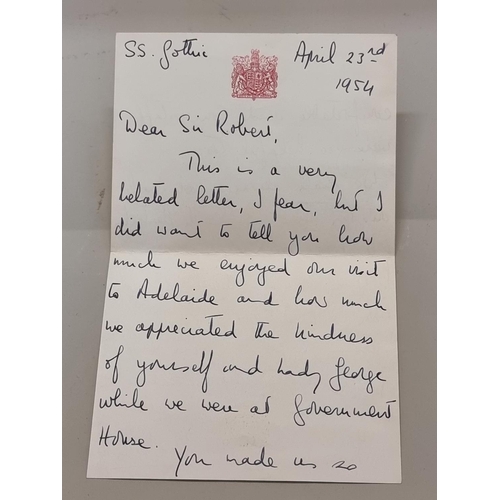 SS. Gothic April 23rd
1954
Dear Sir Robert,
This is a very
belated letter, I fear, but I
did want to tell you how
much we enjoyed our visit
to Adelaide and how much
we appreciated the kindness
of yourself and Lady George
while we were at Government
House.
You made us so